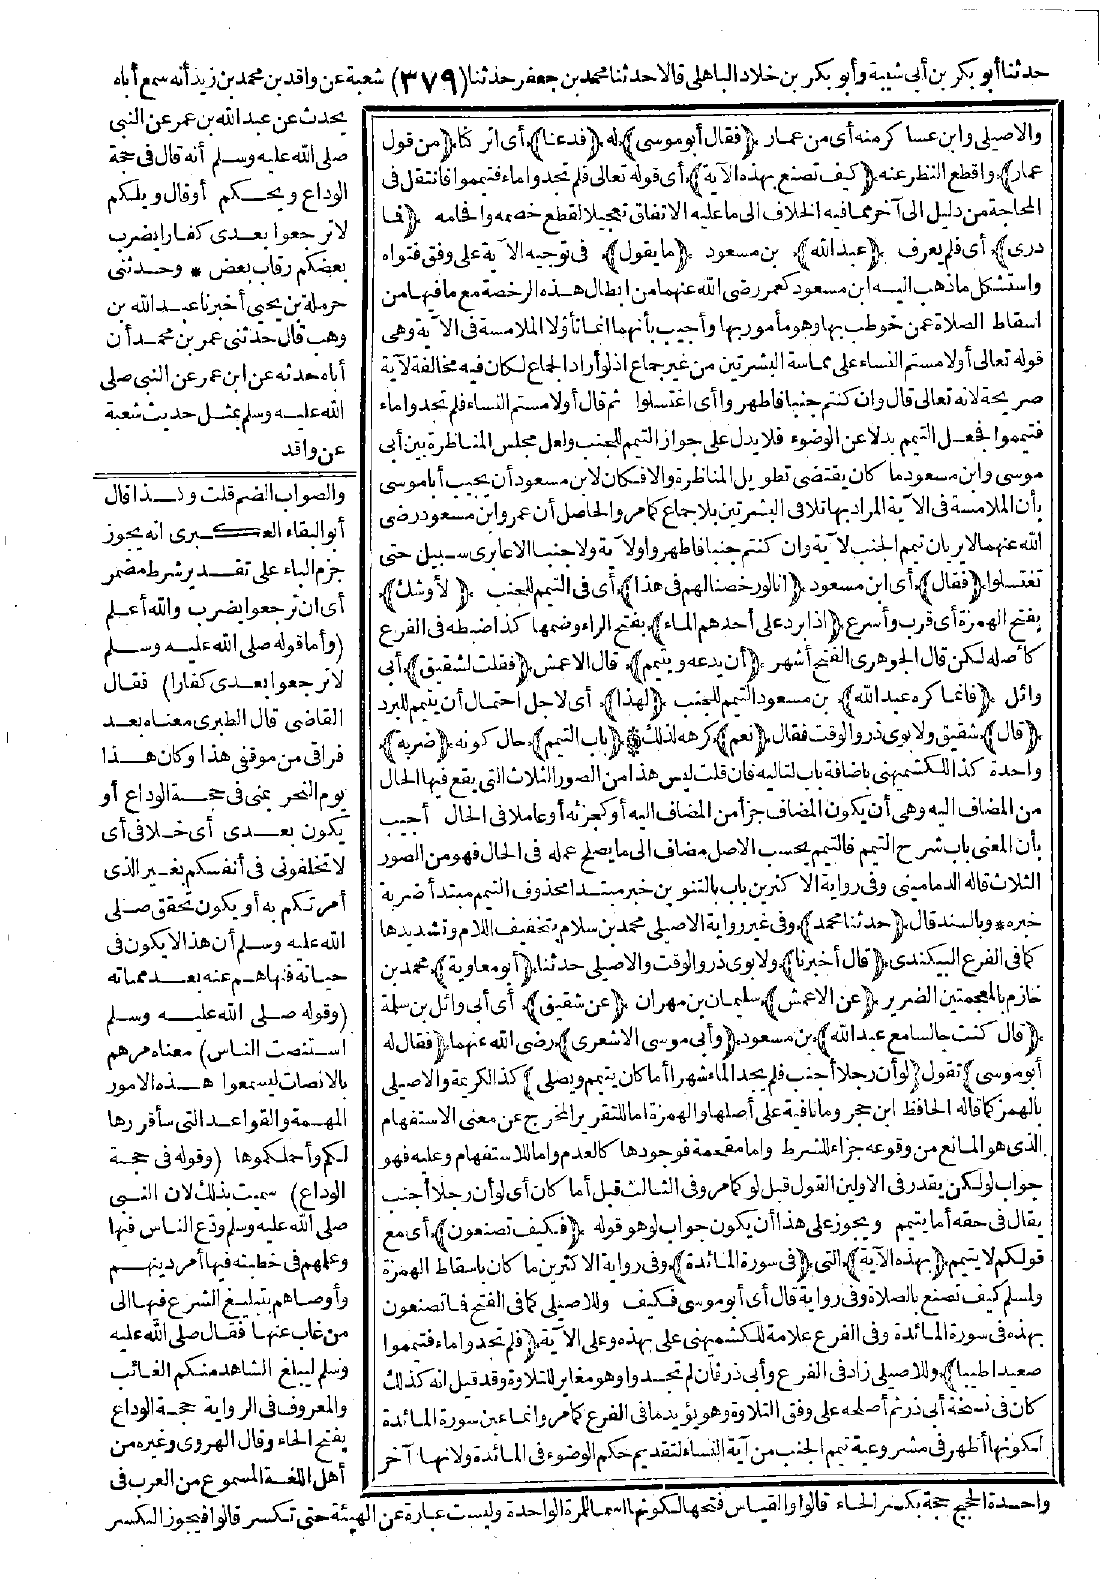 حدثنا أبو بكر بن أبي شيبة وأبو بكر بن خلاد الباهلي قالا حدثنا محمد بن جعفر حدثنا (٣٧٩) شعبة عن واقد بن محمد بن زيد أنه سمع أباه
يحدث عن عبد الله بن عمر عن النبي
صلى الله عليه وسلم أنه قال في حجة
الوداع ويحكم أو قال ويلكم
لا ترجعوا بعدي كفارا يضرب
بعضكم رقاب بعض * وحدثني
حرملة بن يحيى أخبرنا عبد الله بن
وهب قال حدثني عمر بن محمد أن
أباه حدثه عن ابن عمر عن النبي صلى
الله عليه وسلم بمثل حديث شعبة
عن واقد
والصواب الضم قلت وكذا قال
أبو البقاء العكبري انه يجوز
جزم الباء على تقدير شرط مضمر
أي ان ترجعوا يضرب والله أعلم
(وأما قوله صلى الله عليه وسلم
لا ترجعوا بعدي كفارا) فقال
القاضي قال الطبري معناه بعد
فراقي من موقفي هذا وكان هذا
يوم النحر بمنى في حجة الوداع أو
يكون بعدي أي خلافي أي
لا تخلفوني في أنفسكم بغير الذي
أمرتكم به أو يكون تحقق صلى
الله عليه وسلم أن هذا لا يكون في
حياته فنهاهم عنه بعد مماته
(وقوله صلى الله عليه وسلم
استنصت الناس) معناه مرهم
بالانصات ليسمعوا هذه الامور
المهمة والقواعد التي سأقررها
لكم وأحملكموها (وقوله في حجة
الوداع) سميت بذلك لان النبي
صلى الله عليه وسلم ودع الناس فيها
وعلمهم في خطبته فيها أمر دينهم
وأوصاهم بتبليغ الشرع فيها الى
من غاب عنها فقال صلى الله عليه
وسلم ليبلغ الشاهد منكم الغائب
والمعروف في الرواية حجة الوداع
بفتح الحاء وقال الهروي وغيره من
أهل اللغة المسموع من العرب في
والاصيلي وابن عساكر منه أي من عمار (فقال أبو موسى) له (فدعنا) أي اتركنا (من قول
عمار) واقطع النظر عنه (كيف تصنع بهذه الآية) أي قوله تعالى فلم تجدوا ماء فتيمموا فانتقل في
المحاجة من دليل الى آخر مما فيه الخلاف الى ما عليه الاتفاق تعجيلا لقطع خصمه وافحامه (فما
درى) أي فلم يعرف (عبد الله) بن مسعود (ما يقول) في توجيه الآية على وفق فتواه
واستشكل ما ذهب اليه ابن مسعود كعمر رضي الله عنهما من ابطال هذه الرخصة مع ما فيها من
اسقاط الصلاة عمن خوطب بها وهو مأمور بها وأجيب بأنهما انما تأولا الملامسة في الآية وهي
قوله تعالى أو لامستم النساء على مماسة البشرتين من غير جماع اذ لو أراد الجماع لكان فيه مخالفة لآية
صريحة لانه تعالى قال وان كنتم جنبا فاطهروا أي اغتسلوا ثم قال أو لامستم النساء فلم تجدوا ماء
فتيمموا فجعل التيمم بدلا عن الوضوء فلا يدل على جواز التيمم للجنب ولعل مجلس المناظرة بين أبي
موسى وابن مسعود ما كان يقتضي تطويل المناظرة والا فكان لابن مسعود أن يجيب أبا موسى
بأن الملامسة في الآية المراد بها تلاقي البشرتين بلا جماع كما مر والحاصل أن عمر وابن مسعود رضي
الله عنهما لا يريان تيمم الجنب لآية وان كنتم جنبا فاطهروا ولآية ولا جنبا الا عابري سبيل حتى
تغتسلوا (فقال) أي ابن مسعود (انا لو رخصنا لهم في هذا) أي في التيمم للجنب (لأوشك)
بفتح الهمزة أي قرب وأسرع (اذا برد على أحدهم الماء) بفتح الراء وضمها كذا ضبطه في الفرع
كأصله لكن قال الجوهري الفتح أشهر (أن يدعه ويتيمم) قال الاعمش (فقلت لشقيق) أبي
وائل (فانما كره عبد الله) بن مسعود التيمم للجنب (لهذا) أي لاجل احتمال أن يتيمم للبرد
(قال) شقيق ولابوي ذر والوقت فقال (نعم) كرهه لذلك * (باب التيمم) حال كونه (ضربة)
واحدة كذا للكشميهني باضافة باب لتاليه فان قلت ليس هذا من الصور الثلاث التي يقع فيها الحال
من المضاف اليه وهي أن يكون المضاف جزأ من المضاف اليه أو كجزئه أو عاملا في الحال أجيب
بأن المعنى باب شرح التيمم فالتيمم بحسب الاصل مضاف الى ما يصلح عمله في الحال فهو من الصور
الثلاث قاله الدماميني وفي رواية الاكثرين باب بالتنوين خبر مبتدا محذوف التيمم مبتدأ ضربة
خبره * وبالسند قال (حدثنا محمد) وفي غير رواية الاصيلي محمد بن سلام بتخفيف اللام وتشديدها
كما في الفرع البيكندي (قال أخبرنا) ولابوي ذر والوقت والاصيلي حدثنا (أبو معاوية) محمد بن
خازم بالمعجمتين الضرير (عن الاعمش) سليمان بن مهران (عن شقيق) أي أبي وائل بن سلمة
(قال كنت جالسا مع عبد الله) بن مسعود (وأبي موسى الاشعري) رضي الله عنهما (فقال له
أبو موسى) تقول (لو أن رجلا أجنب فلم يجد الماء شهرا أما كان يتيمم ويصلي) كذا لكريمة والاصيلي
بالهمز كما قاله الحافظ ابن حجر وما نافية على أصلها والهمزة اما للتقرير المخرج عن معنى الاستفهام
الذي هو المانع من وقوعه جزاء للشرط واما مقحمة فوجودها كالعدم واما للاستفهام وعليه فهو
جواب لو لكن يقدر في الاولين القول قبل لو كما مر وفي الثالث قبل أما كان أي لو أن رجلا أجنب
يقال في حقه أما يتيمم ويجوز على هذا أن يكون جواب لو هو قوله (فكيف تصنعون) أي مع
قولكم لا يتيمم (بهذه الآية) التي (في سورة المائدة) وفي رواية الاكثرين ما كان باسقاط الهمزة
ولمسلم كيف تصنع بالصلاة وفي رواية قال أي أبو موسى فكيف وللاصيلي كما في الفتح فما تصنعون
بهذه في سورة المائدة وفي الفرع علامة للكشميهني على بهذه وعلى الآية (فلم تجدوا ماء فتيمموا
صعيدا طيبا) وللاصيلي زاد في الفرع وأبي ذر فان لم تجدوا وهو مغاير للتلاوة وقد قيل انه كذلك
كان في نسخة أبي ذر ثم أصلحه على وفق التلاوة وهو يؤيد ما في الفرع كما مر وانما عين سورة المائدة
لكونها أظهر في مشروعية تيمم الجنب من آية النساء لتقديم حكم الوضوء في المائدة ولانها آخر
واحدة الحجج حجة بكسر الحاء قالوا والقياس فتحها لكونها اسما للمرة الواحدة وليست عبارة عن الهيئة حتى تكسر قالوا فيجوز الكسر